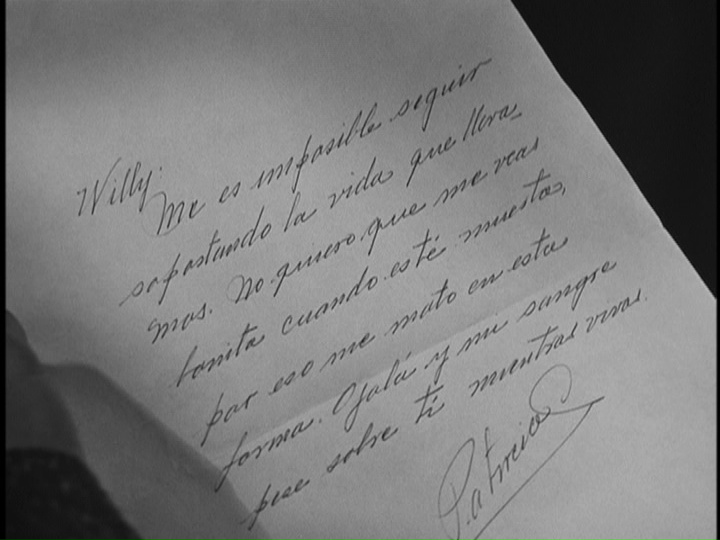 Willy:
Me es imposible seguir
soportando la vida que lleva-
mos. No quiero que me veas
bonita cuando esté muerta,
por eso me mato en esta
forma. Ojalá y mi sangre
pese sobre tí mientras vivas.
Patricia